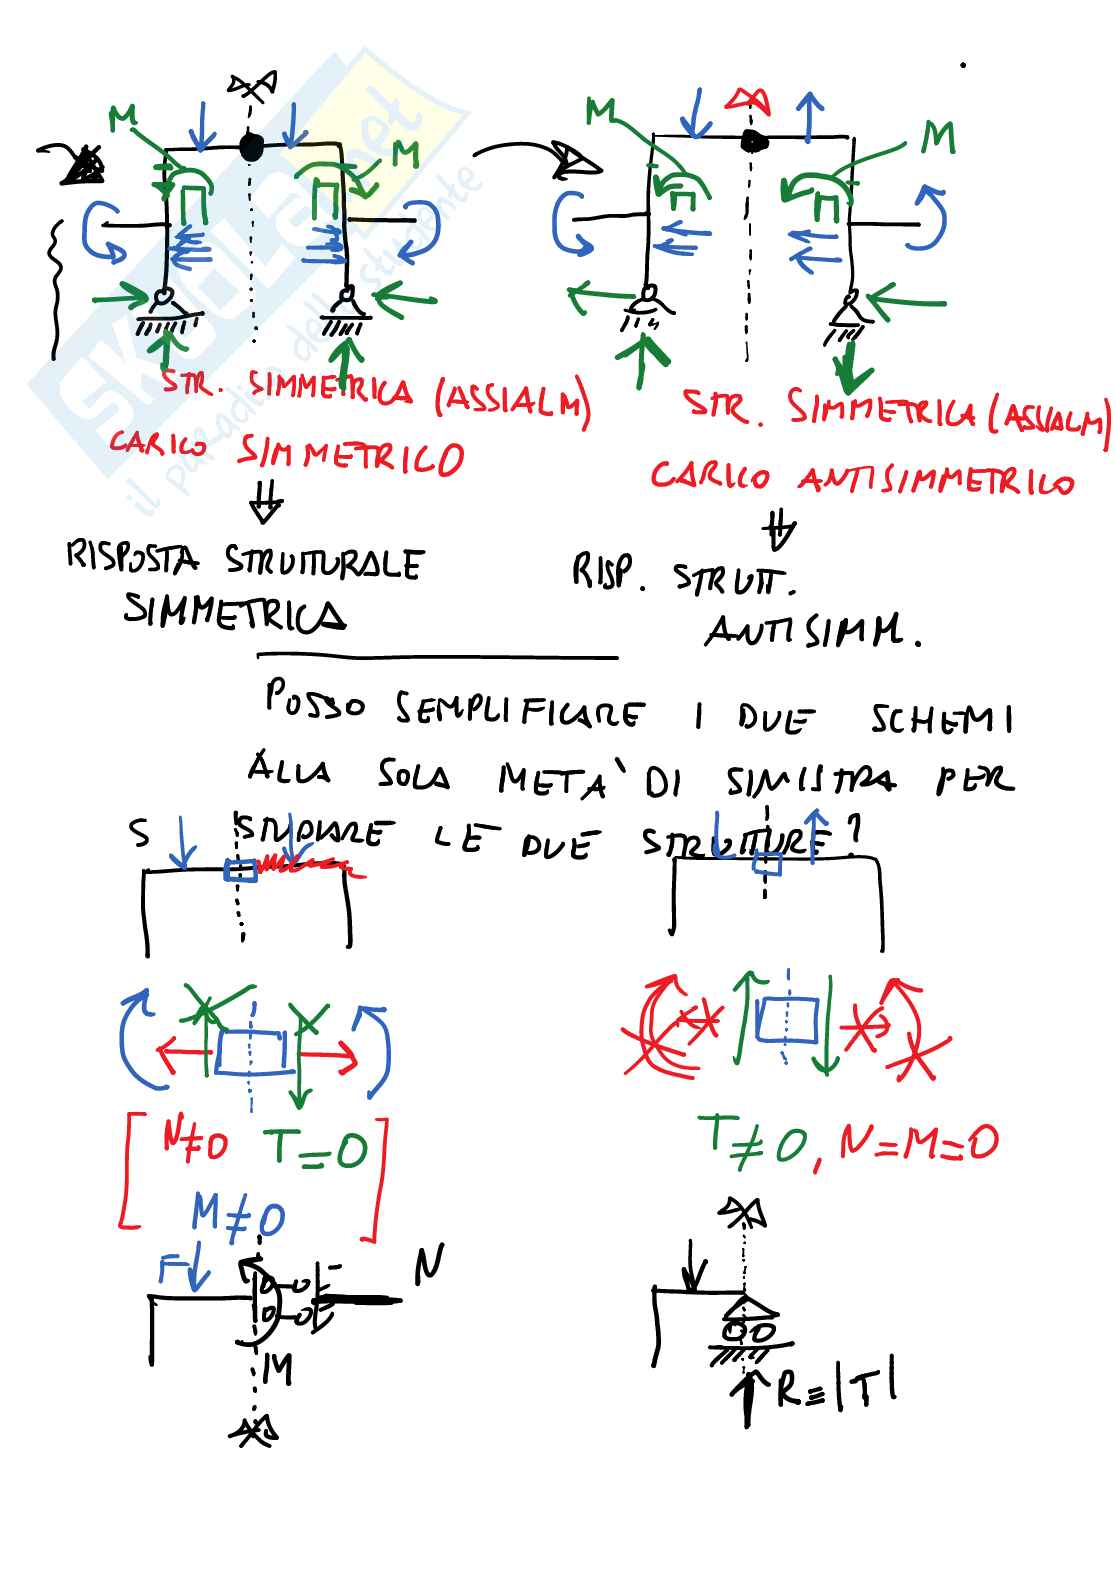 M
M
M
M
STR. SIMMETRICA (ASSIALM)
CARICO SIMMETRICO
STR. SIMMETRICA (ASSIALM)
CARICO ANTISIMMETRICO
RISPOSTA STRUTTURALE
SIMMETRICA
RISP. STRUTT.
ANTISIMM.
POSSO SEMPLIFICARE I DUE SCHEMI
ALLA SOLA METÀ DI SINISTRA PER
STUDIARE LE DUE STRUTTURE?
S
N≠0 T=0
M≠0
T≠0, N=M=0
F
N
M
R≡|T|
SKUOLA.net
il paradiso dello studente